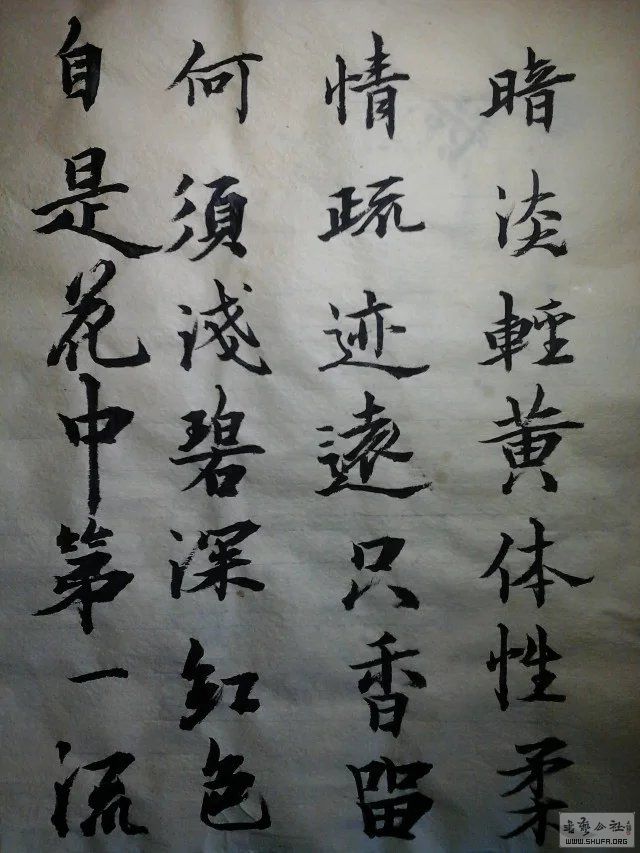 暗淡輕黃体性柔
情疏迹遠只香留
何須淺碧深紅色
自是花中第一流
WWW.SHUFA.ORG